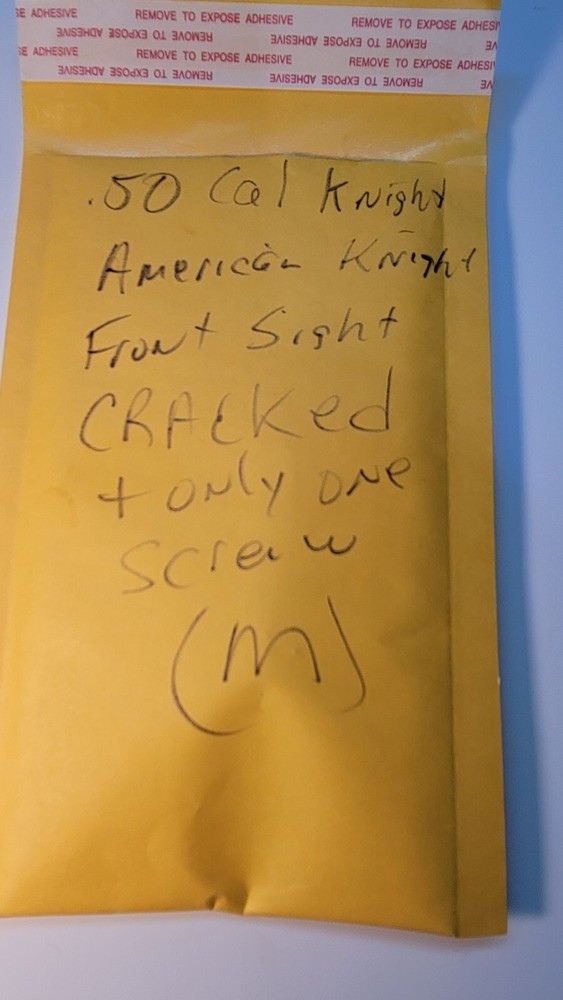 SE ADHESIVE REMOVE TO EXPOSE ADHESIVE REMOVE TO EXPOSE ADHESIV
REMOVE TO EXPOSE ADHESIVE REMOVE TO EXPOSE ADHESIVE VE
SE ADHESIVE REMOVE TO EXPOSE ADHESIVE REMOVE TO EXPOSE ADHESI
REMOVE TO EXPOSE ADHESIVE REMOVE TO EXPOSE ADHESIVE VE
.50 Cal Knight
American Knight
Front Sight
CRACKed
+ only one
Screw
(M)